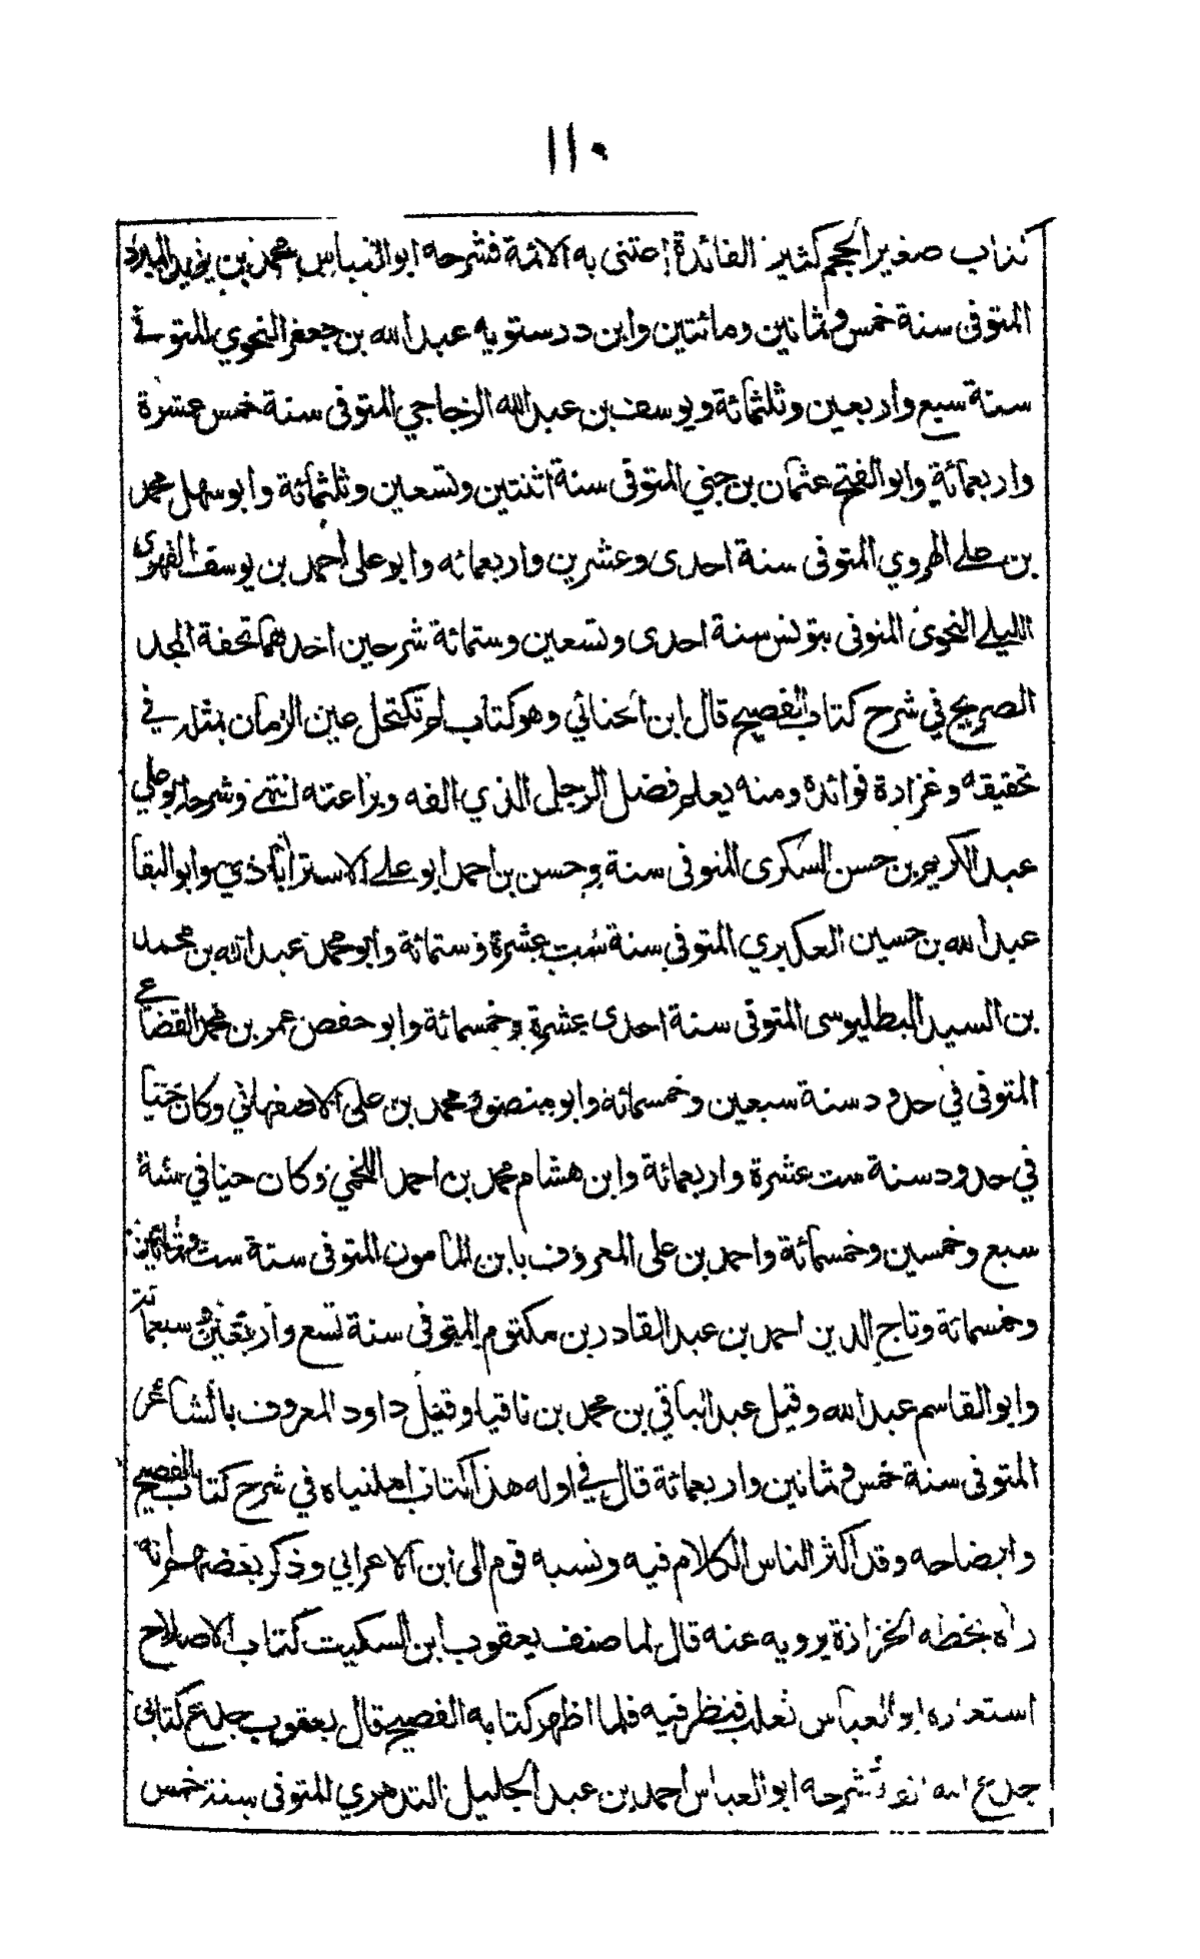 ١١٠
كتاب صغير الحجم كثير الفائدة اعتنى به الائمة فشرحه ابو العباس محمد بن يزيد المبرد
المتوفى سنة خمس وثمانين ومائتين وابن درستويه عبد الله بن جعفر النحوي المتوفى
سنة سبع واربعين وثلثمائة ويوسف بن عبد الله الزجاجي المتوفى سنة خمس عشرة
واربعمائة وابو الفتح عثمان بن جني المتوفى سنة اثنتين وتسعين وثلثمائة وابو سهل محمد
بن علي الهروي المتوفى سنة احدى وعشرين واربعمائه وابو على احمد بن يوسف الفهرى
الليلي النحوى المتوفى بتونس سنة احدى وتسعين وستمائة شرحين احدهما تحفة المجد
الصريح في شرح كتاب الفصيح قال ابن الحنائي وهو كتاب لم تكتحل عين الزمان بمثله في
تحقيقه وغزارة فوائده ومنه يعلم فضل الرجل الذي الفه وبراعته انتهى وشرحه ابو علي
عبد الكريم بن حسن السكرى المتوفى سنة وحسن بن احمد ابو علي الاستراباذي وابو البقا
عبد الله بن حسين العكبري المتوفى سنة ست عشرة وستمائة وابو محمد عبد الله بن محمد
بن السيد البطليوسى المتوفى سنة احدى عشرة وخمسمائة وابو حفص عمر بن محمد القضاعي
المتوفى في حدود سنة سبعين وخمسمائة وابو منصور محمد بن على الاصفهاني وكان حيا
في حدود سنة ست عشرة واربعمائة وابن هشام محمد بن احمد اللخمي وكان حيا في سنة
سبع وخمسين وخمسمائة واحمد بن على المعروف بابن المامون المتوفى سنة ست وثمانين
وخمسمائة وتاج الدين احمد بن عبد القادر بن مكتوم المتوفى سنة تسع واربعين وسبعمائة
وابو القاسم عبد الله وقيل عبد الباقي بن محمد بن ناقيا وقيل داود المعروف بالشاعر
المتوفى سنة خمس وثمانين واربعمائة قال في اوله هذا كتاب املنياه في شرح كتاب الفصيح
وايضاحه وقد اكثر الناس الكلام فيه ونسبه قوم الى ابن الاعرابي وذكر بعضهم انه
راه بخطه يرويه عنه قال لما صنف يعقوب ابن السكيت كتاب الاصلاح
استعاره ابو العباس ثعلب فنظر فيه فلما اظهر كتابه الفصيح قال يعقوب جدع كتابى
جدع الله انفه وشرحه ابو العباس احمد بن عبد الجليل التدمري المتوفى سنة خمس